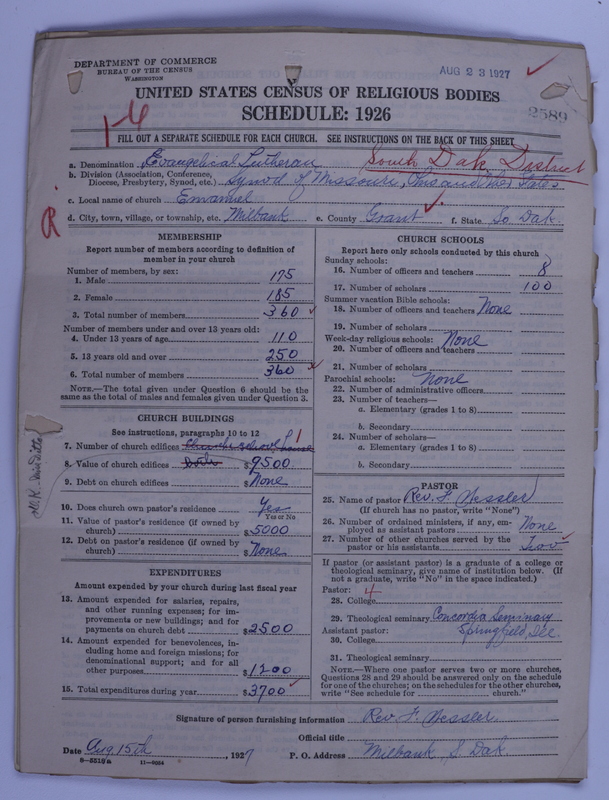 DEPARTMENT OF COMMERCE
BUREAU OF THE CENSUS
WASHINGTON
AUG 23 1927
UNITED STATES CENSUS OF RELIGIOUS BODIES
SCHEDULE: 1926
2589
1-6
FILL OUT A SEPARATE SCHEDULE FOR EACH CHURCH. SEE INSTRUCTIONS ON THE BACK OF THIS SHEET
a. Denomination Evangelical Lutheran South Dak District
b. Division (Association, Conference, Diocese, Presbytery, Synod, etc.) Synod of Missouri, Ohio and other States
c. Local name of church Emanuel
R
d. City, town, village, or township, etc. Milbank e. County Grant f. State So. Dak.
MEMBERSHIP
Report number of members according to definition of
member in your church
Number of members, by sex:
1. Male 175
2. Female 185
3. Total number of members 360
Number of members under and over 13 years old:
4. Under 13 years of age 110
5. 13 years old and over 250
6. Total number of members 360
NOTE.—The total given under Question 6 should be
the same as the total of males and females given under Question 3.
CHURCH BUILDINGS
See instructions, paragraphs 10 to 12
7. Number of church edifices church school house 1
8. Value of church edifices both $9500
9. Debt on church edifices $None
10. Does church own pastor's residence Yes
Yes or No
11. Value of pastor's residence (if owned by
church) $5000
12. Debt on pastor's residence (if owned by
church) $None
EXPENDITURES
Amount expended by your church during last fiscal year
13. Amount expended for salaries, repairs,
and other running expenses; for im-
provements or new buildings; and for
payments on church debt $2500
14. Amount expended for benevolences, in-
cluding home and foreign missions; for
denominational support; and for all
other purposes $1200
15. Total expenditures during year $3700
CHURCH SCHOOLS
Report here only schools conducted by this church
Sunday schools:
16. Number of officers and teachers 8
17. Number of scholars 100
Summer vacation Bible schools:
18. Number of officers and teachers None
19. Number of scholars
Week-day religious schools: None
20. Number of officers and teachers
21. Number of scholars
Parochial schools: None
22. Number of administrative officers
23. Number of teachers—
a. Elementary (grades 1 to 8)
b. Secondary
24. Number of scholars—
a. Elementary (grades 1 to 8)
b. Secondary
PASTOR
25. Name of pastor Rev. F. Nessler
(If church has no pastor, write "None")
26. Number of ordained ministers, if any, em-
ployed as assistant pastors None
27. Number of other churches served by the
pastor or his assistants Two
If pastor (or assistant pastor) is a graduate of a college or
theological seminary, give name of institution below. (If
not a graduate, write "No" in the space indicated.)
Pastor: 4
28. College
29. Theological seminary Concordia Seminary
Assistant pastor: Springfield, Ill
30. College
31. Theological seminary
NOTE.—Where one pastor serves two or more churches,
Questions 28 and 29 should be answered only on the schedule
for one of the churches; on the schedules for the other churches,
write "See schedule for church."
Signature of person furnishing information Rev F. Nessler
Official title
Date Aug. 15th, 1927 P. O. Address Milbank, S. Dak.
8-5518a 11-9084